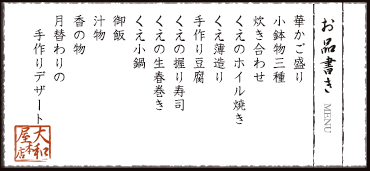 お品書き
MENU
華かご盛り
小鉢物三種
炊き合わせ
くえのホイル焼き
くえ薄造り
手作り豆腐
くえの握り寿司
くえの生春巻き
くえ小鍋
御飯
汁物
香の物
月替わりの
手作りデザート
大和屋本店